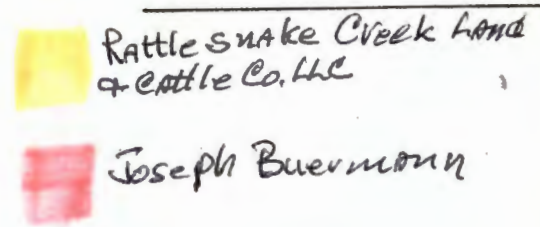 Rattle Snake Creek Land
& Cattle Co. LLC
Joseph Buermann